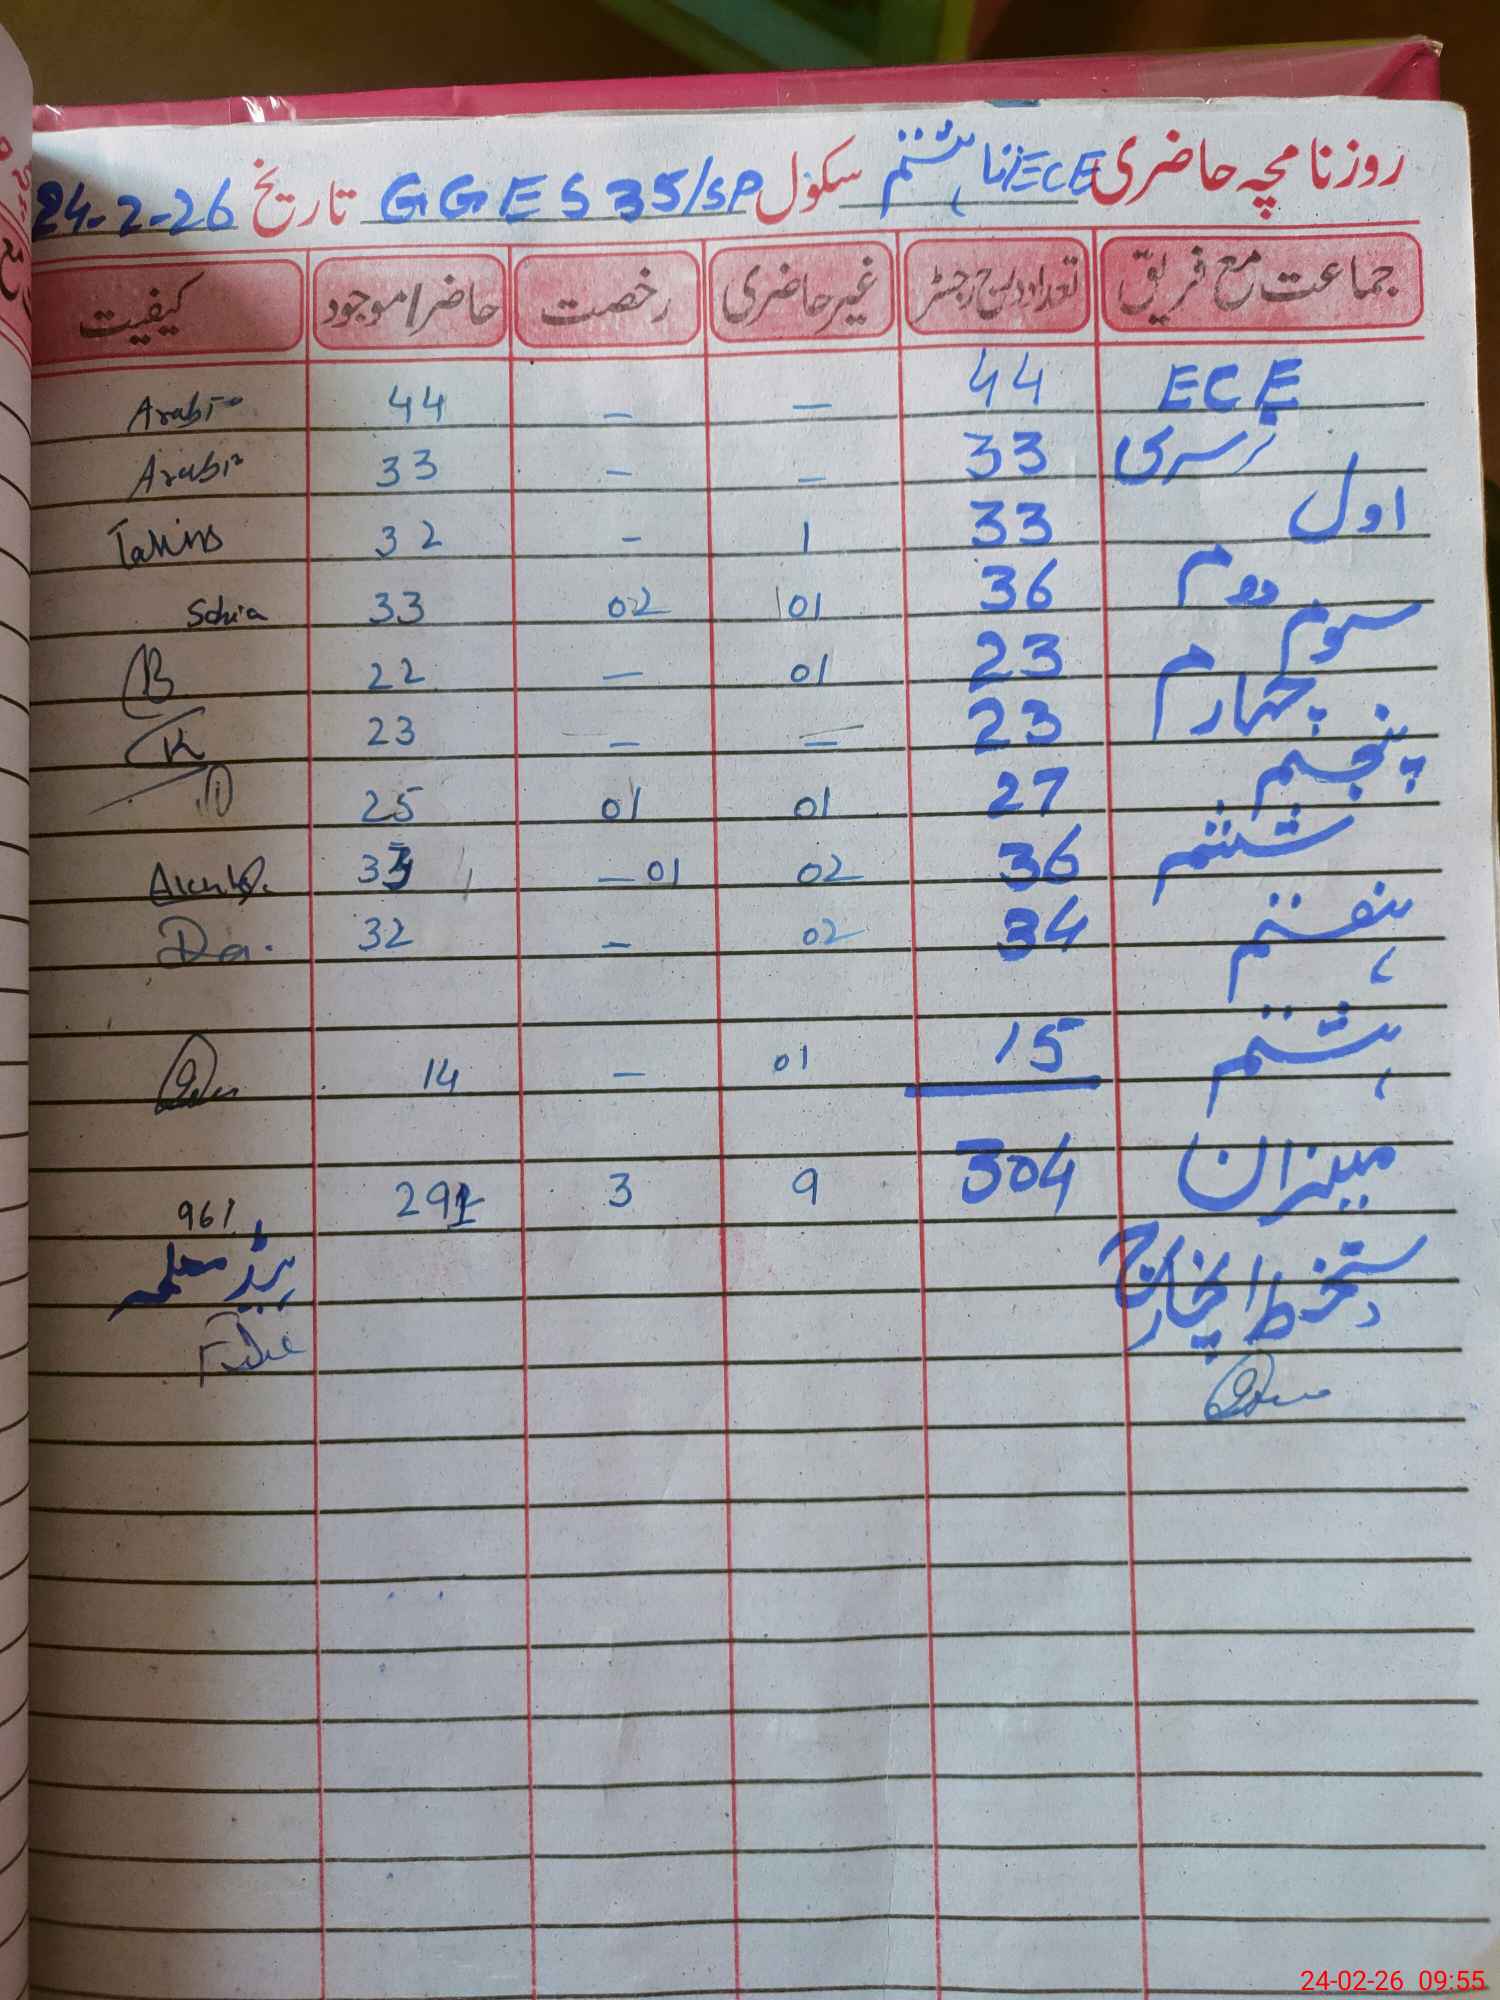 روزنامچہ حاضری ECE تا ہشتم سکول GGES 35/SP تاریخ 24-2-26
جماعت مع فریق تعداد درج رجسٹر غیر حاضری رخصت حاضر/موجود کیفیت
ECE 44 – – 44
نرسری 33 – – 33
اول 33 1 – 32
دوم 36 01 02 33
سوم 23 01 – 22
چہارم 23 – – 23
پنجم 27 01 01 25
ششم 36 02 01 33
ہفتم 34 02 – 32
ہشتم 15 01 – 14
میزان 304 9 3 291 961
دستخط انچارج ہیڈ معلمہ
24-02-26 09:55